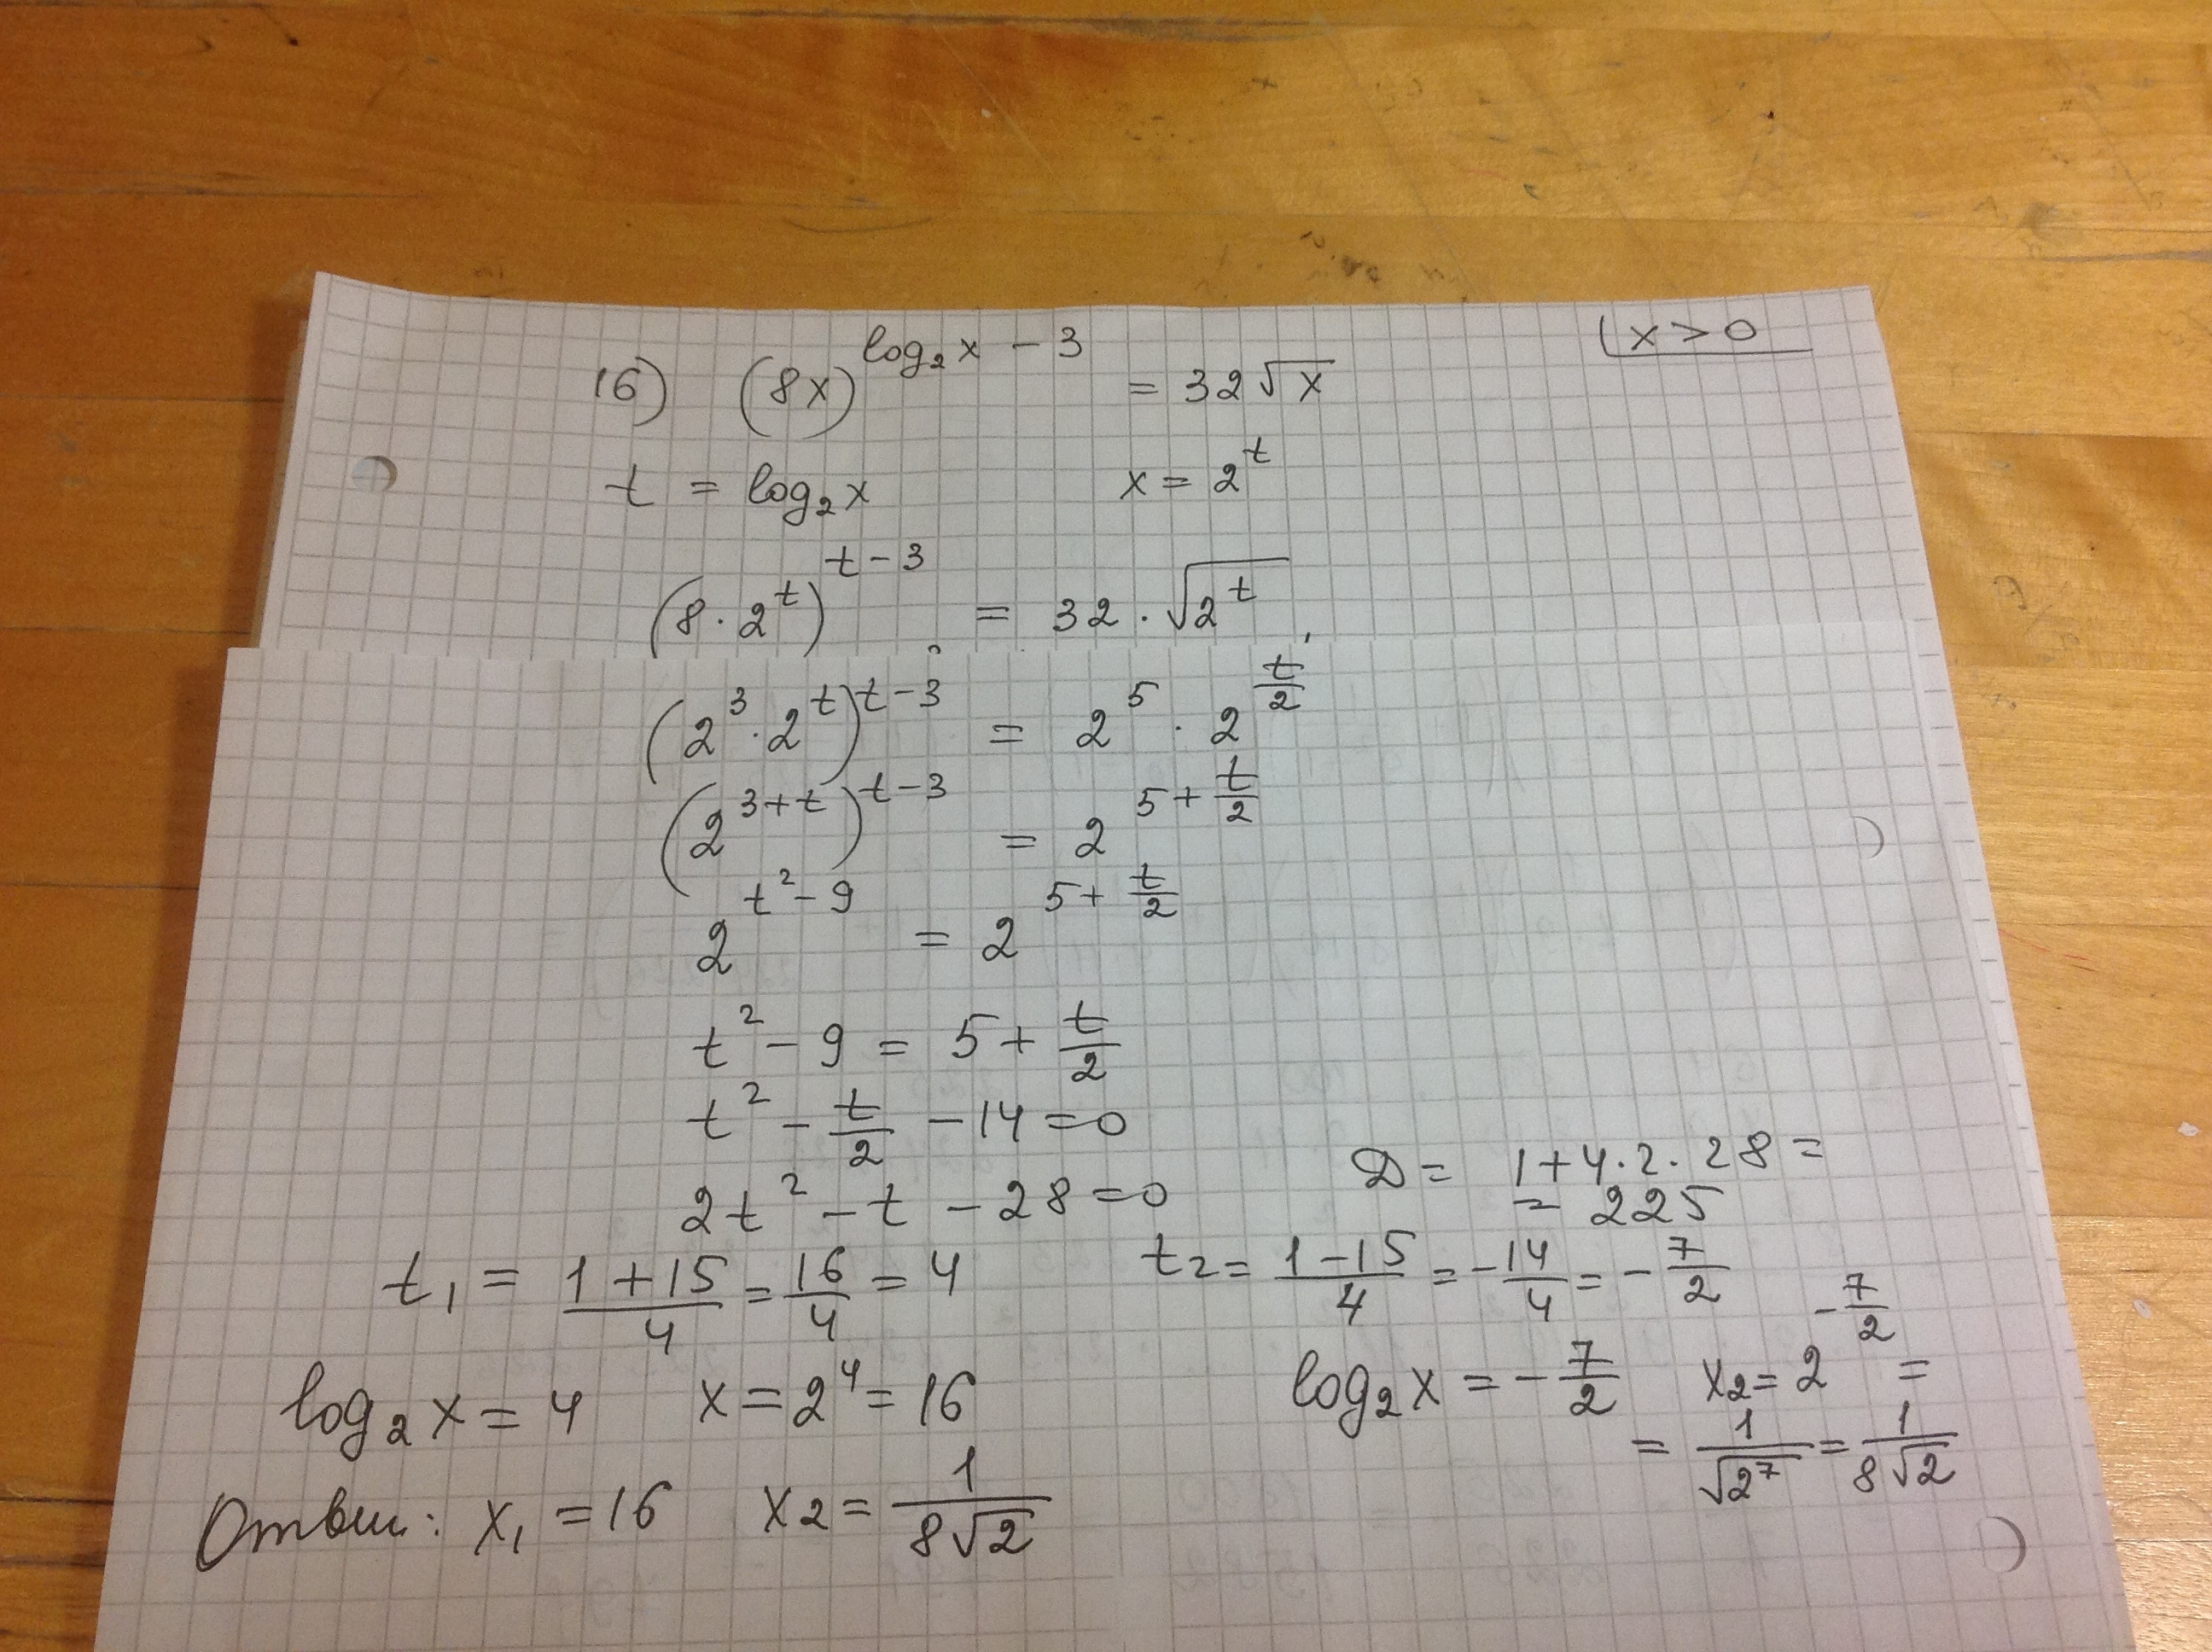 16) (8x)^(log₂x − 3) = 32√x x > 0
t = log₂x x = 2^t
(8 · 2^t)^(t−3) = 32 · √(2^t)
(2³ · 2^t)^(t−3) = 2⁵ · 2^(t/2)
(2^(3+t))^(t−3) = 2^(5 + t/2)
2^(t²−9) = 2^(5 + t/2)
t² − 9 = 5 + t/2
t² − t/2 − 14 = 0
2t² − t − 28 = 0 D = 1 + 4·2·28 =
= 225
t₁ = (1 + 15)/4 = 16/4 = 4 t₂ = (1 − 15)/4 = −14/4 = −7/2
log₂x = 4 x = 2⁴ = 16 log₂x = −7/2 x₂ = 2^(−7/2) =
= 1/√(2⁷) = 1/(8√2)
Ответ: x₁ = 16 x₂ = 1/(8√2)